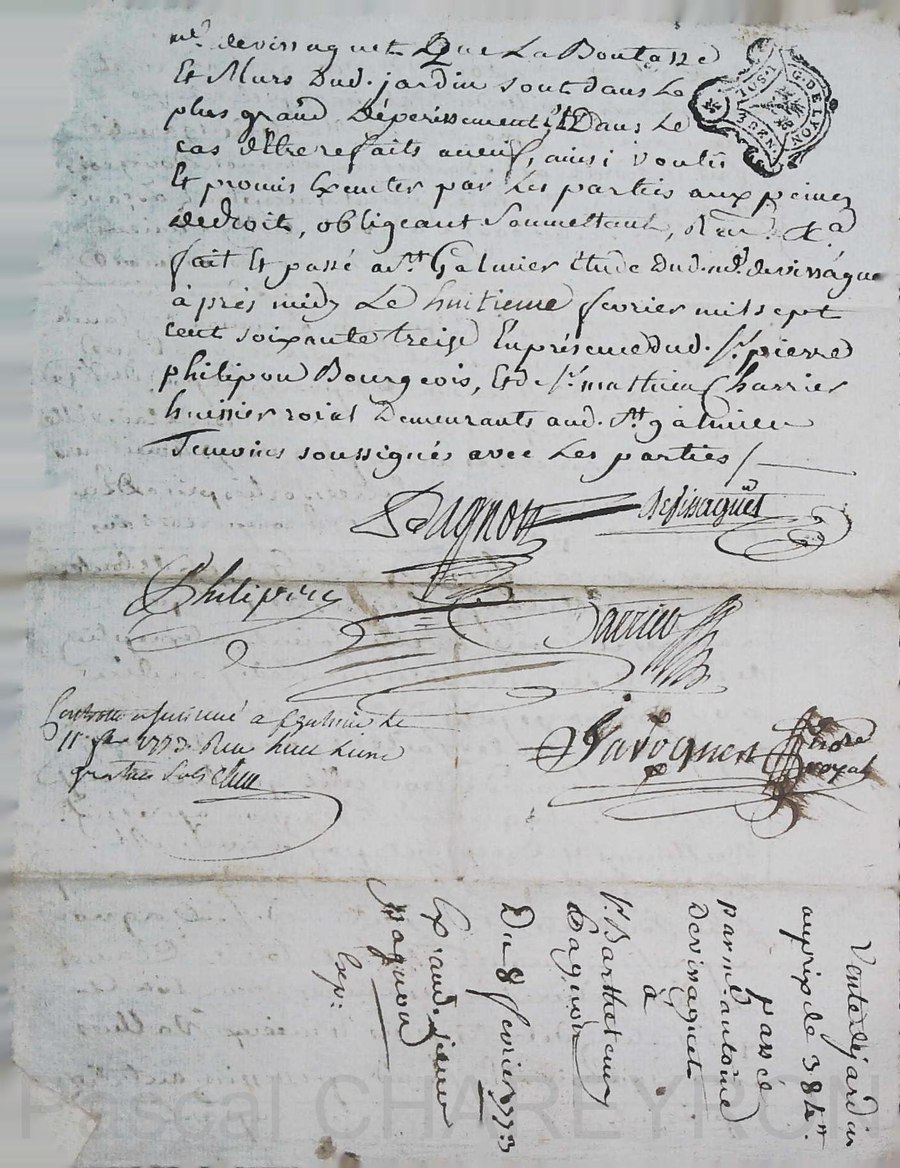 me. devissaguet Que La Boutasse
Et Murs Dud. jardin sont dans Le
plus grand Déperissement Et Dans Le
cas d'Etre refaits aneuf, ainsi voulu
Et promis Executer par Les parties aux peines
de droit, obligeant Soumettant, Ren. &a
fait Et passé a St. Galmier étude Dud. me. devissague
après midy Le huitieme fevrier mil sept
cent soixante treise En présence dud. Sr. pierre
philipon Bourgeois, Et de Sr. mathieu Charrier
huissier roial Demeurants aud. St. galmier
Temoins soussignés avec Les parties /
Dagnon devissaguet
Philipon
Charrier
Controllé a St galmier le
11 fer 1773. Reçu
Javogues Nore
royal
Vente de jardin
au prix de 384#
passé
par m. antoine
Devissaguet
à
Sr. Barthelemy
Dagnon
Du 8 fevrier 1773
Exp. aud. sieur
Dagnon
Exp.
Pascal CHAREYRON
G. DE LYON